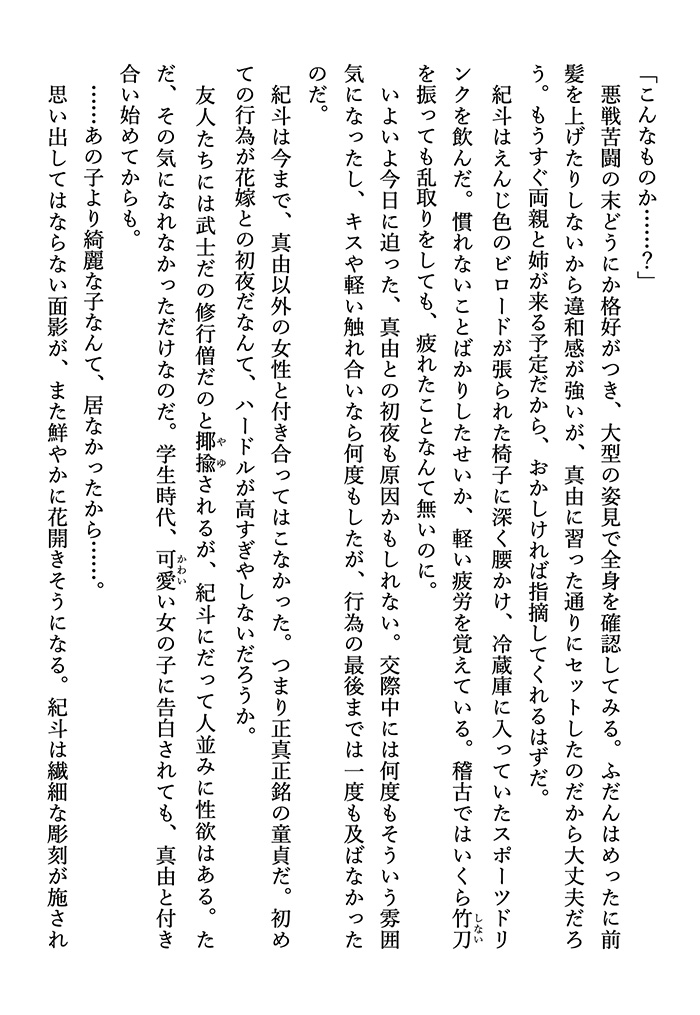 「こんなものか……？」
　悪戦苦闘の末どうにか格好がつき、大型の姿見で全身を確認してみる。ふだんはめったに前
髪を上げたりしないから違和感が強いが、真由に習った通りにセットしたのだから大丈夫だろ
う。もうすぐ両親と姉が来る予定だから、おかしければ指摘してくれるはずだ。
　紀斗はえんじ色のビロードが張られた椅子に深く腰かけ、冷蔵庫に入っていたスポーツドリ
ンクを飲んだ。慣れないことばかりしたせいか、軽い疲労を覚えている。稽古ではいくら竹刀
を振っても乱取りをしても、疲れたことなんて無いのに。
　いよいよ今日に迫った、真由との初夜も原因かもしれない。交際中には何度もそういう雰囲
気になったし、キスや軽い触れ合いなら何度もしたが、行為の最後までは一度も及ばなかった
のだ。
　紀斗は今まで、真由以外の女性と付き合ってはこなかった。つまり正真正銘の童貞だ。初め
ての行為が花嫁との初夜だなんて、ハードルが高すぎやしないだろうか。
　友人たちには武士だの修行僧だのと揶揄されるが、紀斗にだって人並みに性欲はある。た
だ、その気になれなかっただけなのだ。学生時代、可愛い女の子に告白されても、真由と付き
合い始めてからも。
　……あの子より綺麗な子なんて、居なかったから……。
　思い出してはならない面影が、また鮮やかに花開きそうになる。紀斗は繊細な彫刻が施され
しない
やゆ
かわい